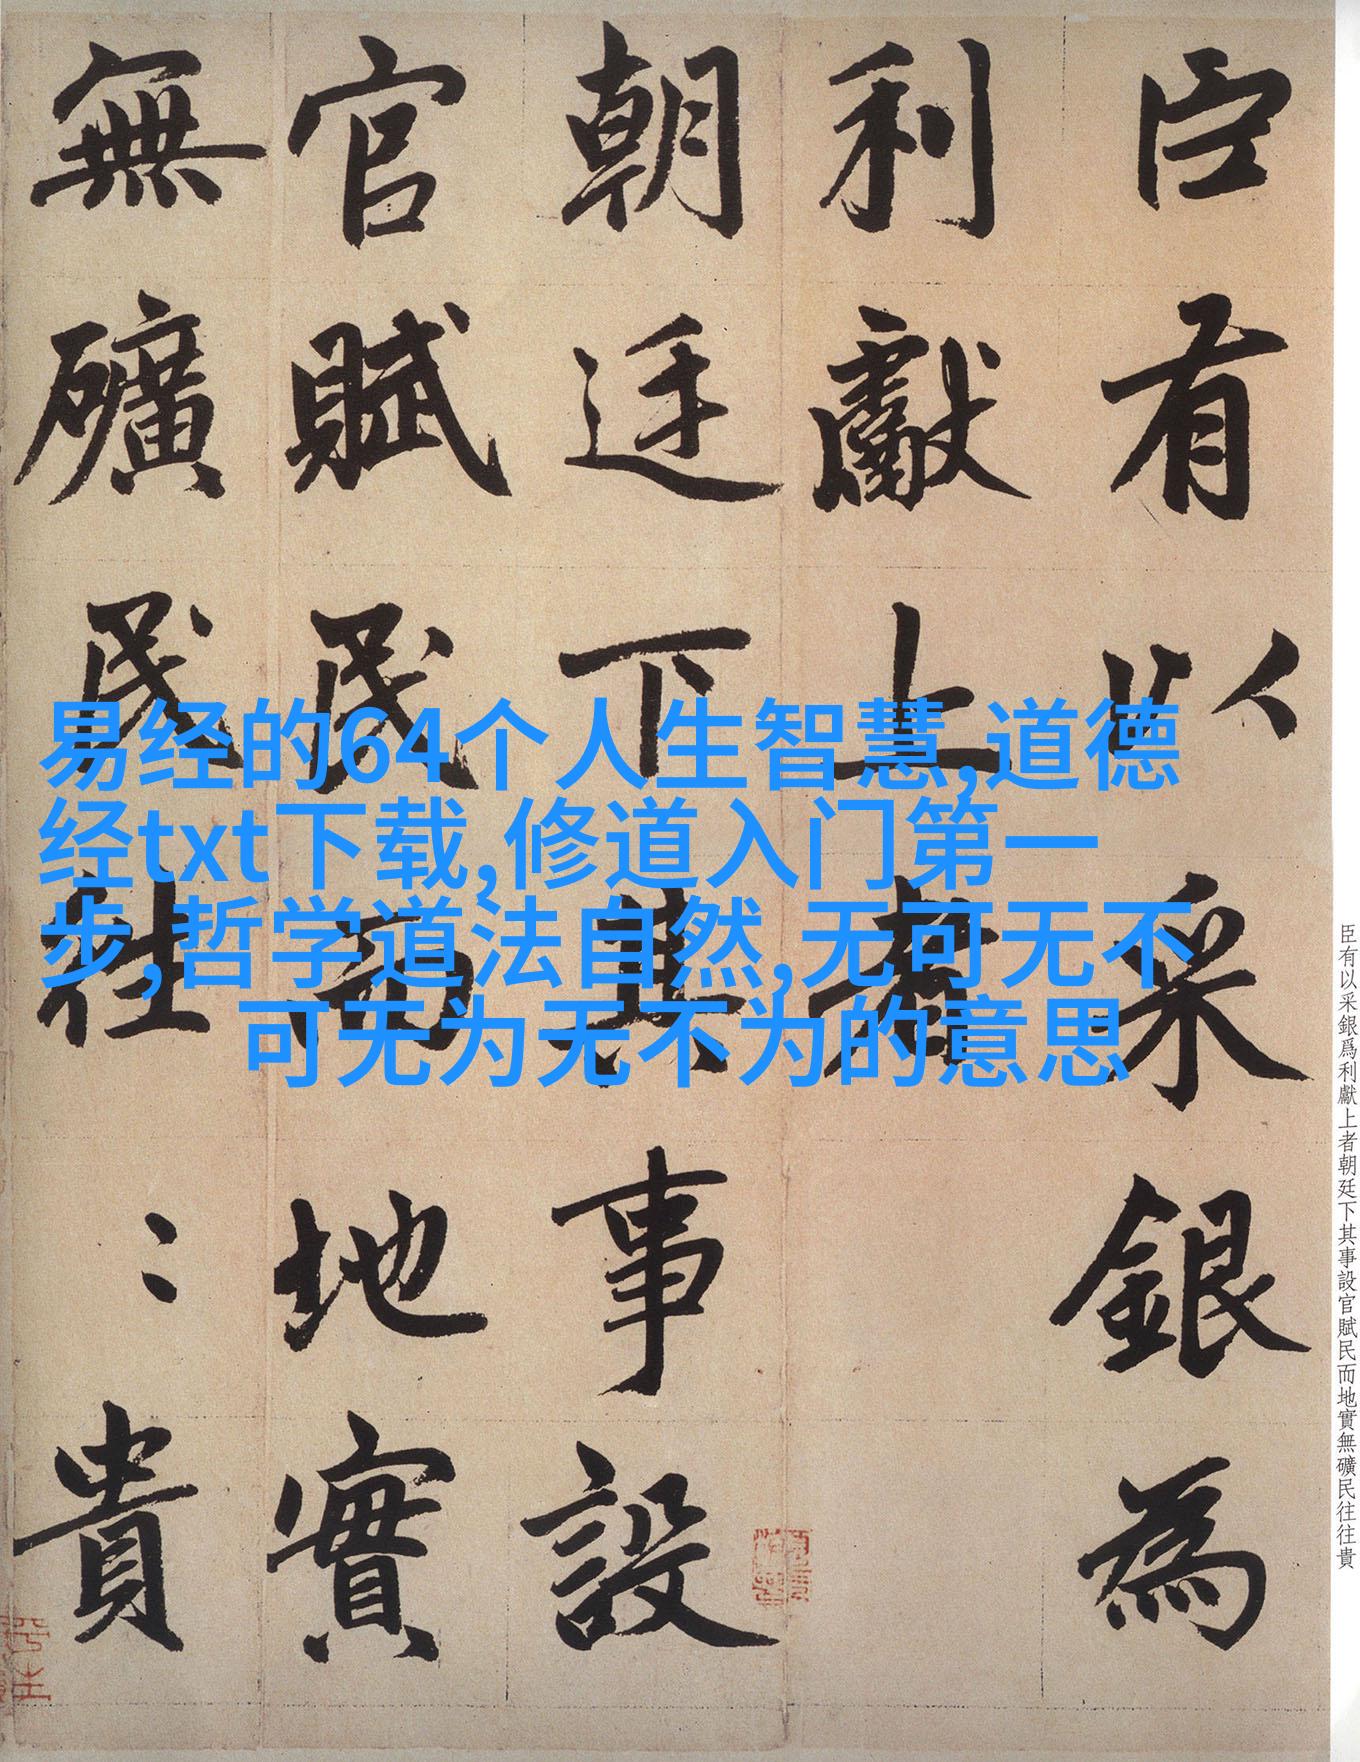 臣有以采銀為
利獻上者
朝廷下其事設
官賦民而地實
無礦民往〻貴
易经的64个人生智慧,道德
经txt下载,修道入门第一
步,哲学道法自然,无可无不
可无为无不为的意思
臣有以采銀爲利獻上者朝廷下其事設官賦民而地實無礦民往往貴